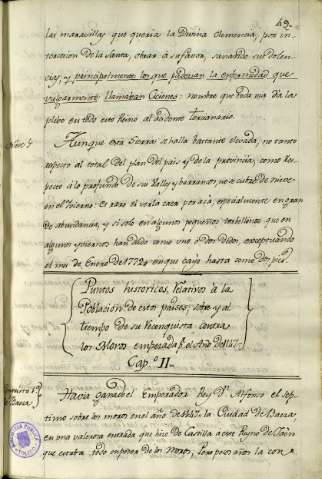 49.
las maravillas que queria la Divina Clemencia, por in-
tercesion de la Santa, obrar à su favor, sanando sus dolen-
cias, y principalmente los que padecian la enfermedad que
vulgarmente llamaban Ciciones: nombre que toda via dà la
plebe en todo este Reino al doliente Tercionario.
Nieve
Aunque esta Sierra se halla bastante elevada, no tanto
respecto al total del plan del pais y de la provincia, como res-
pecto à lo profundo de sus Valles y barrancos, no se cubre de nieve
en el Invierno. Es raro el verla caer por acà, especialmente en gran-
de abundancia, y si solo en algunos pequeños que en
algunos Ynviernos han dado como uno ò dos dedos, exceptuando
el mes de Enero de 1772 en que cayò hasta como dos pies.
Puntos historicos, relativos à la
Poblacion de estos paises, sobre y al
tiempo de su Reconquista contra
los Moros empezada p.r el Año de 1147.
Cap.o II.
Baeza
Havia ganado el Emperador Rey D.n Alfonso el sep-
timo sobre los moros en el año de 1147. la Ciudad de Baeza
en una valerosa entrada que hizo de Castilla à este Reyno de Jaen
que estaba todo en poder de los Moros. Pero pocos años la con-